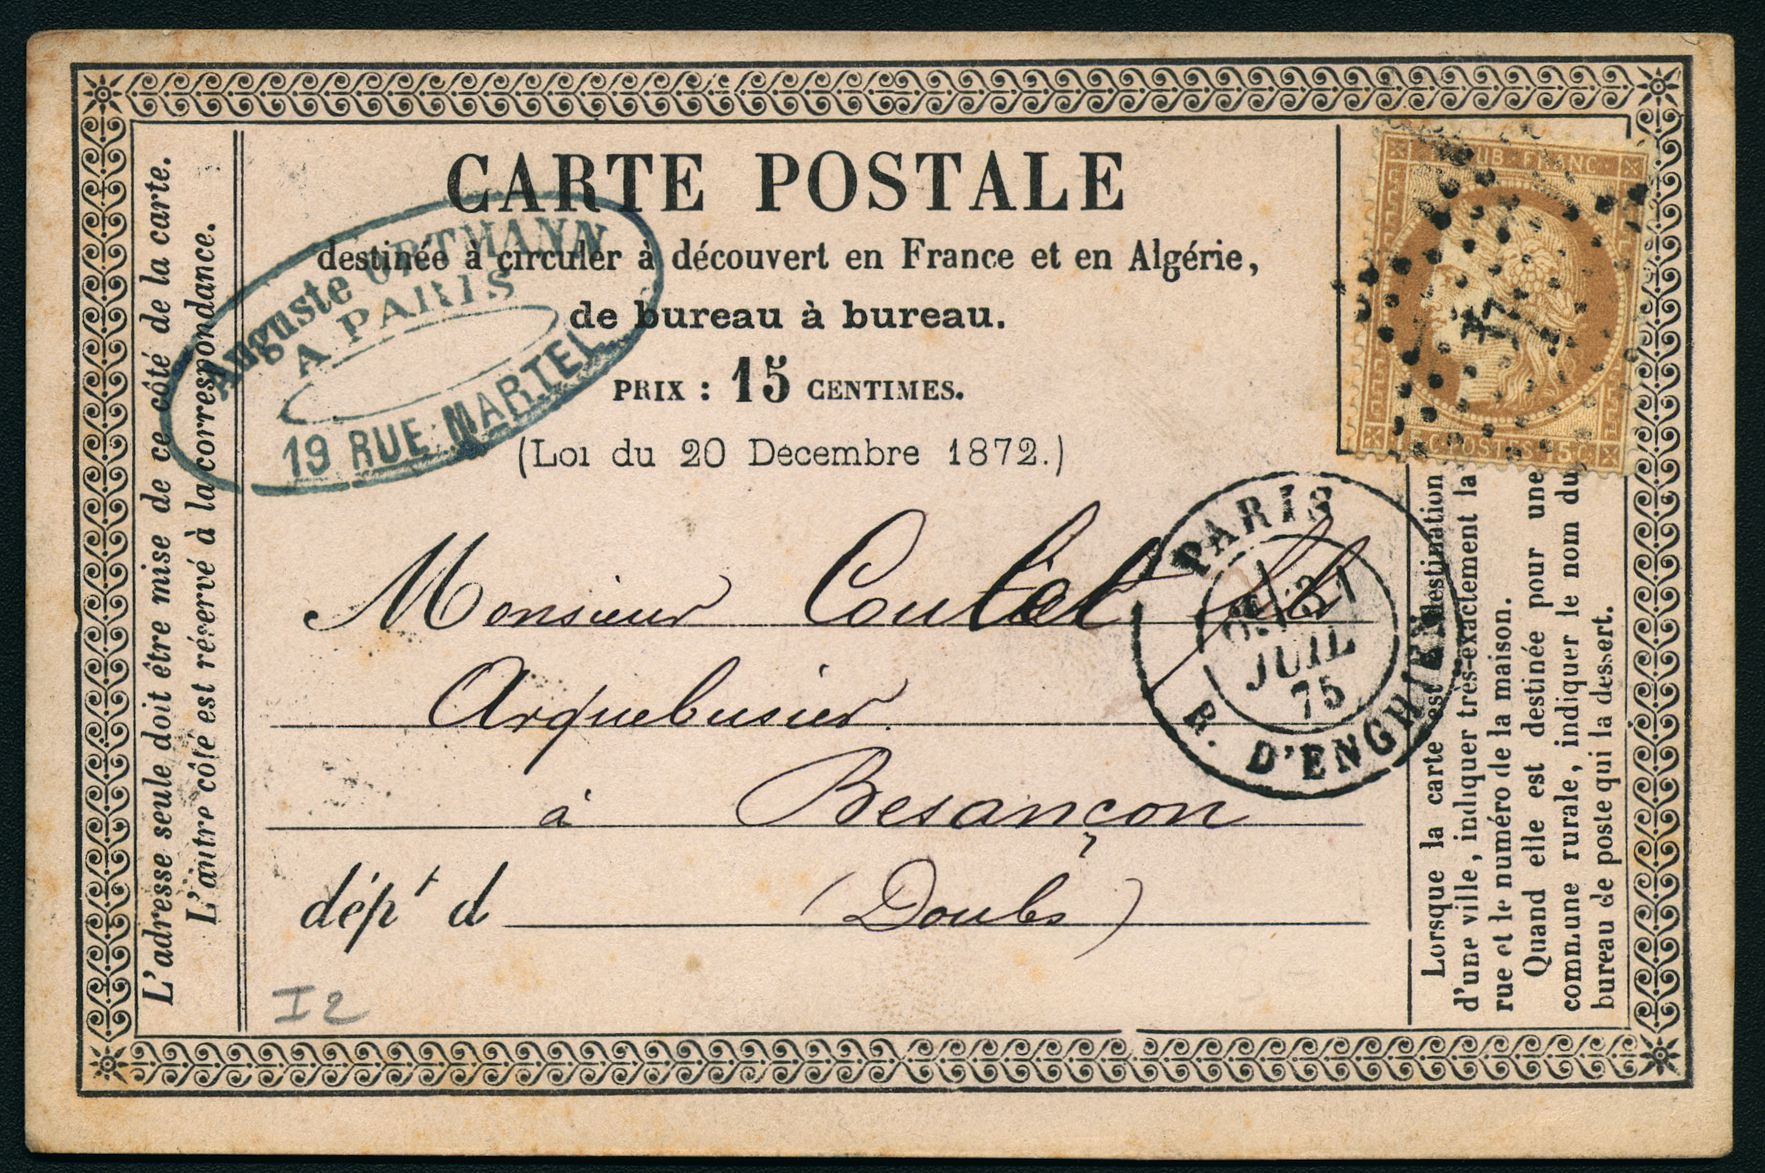 CARTE POSTALE
destinée à circuler à découvert en France et en Algérie,
de bureau à bureau.
PRIX : 15 CENTIMES.
(Loi du 20 Décembre 1872.)
Auguste ORTMANN
A PARIS
19 RUE MARTEL
REPUB. FRANC.
15 C. POSTES 15 C.
PARIS
31
JUIL
75
R. D'ENGHIEN
Monsieur Coutet fils
Arquebusier
à Besançon
dépt d (Doubs)
I2
L'adresse seule doit être mise de ce côté de la carte.
L'autre côté est réservé à la correspondance.
Lorsque la carte est destination
d'une ville, indiquer très-exactement la
rue et le numéro de la maison.
Quand elle est destinée pour une
commune rurale, indiquer le nom du
bureau de poste qui la dessert.